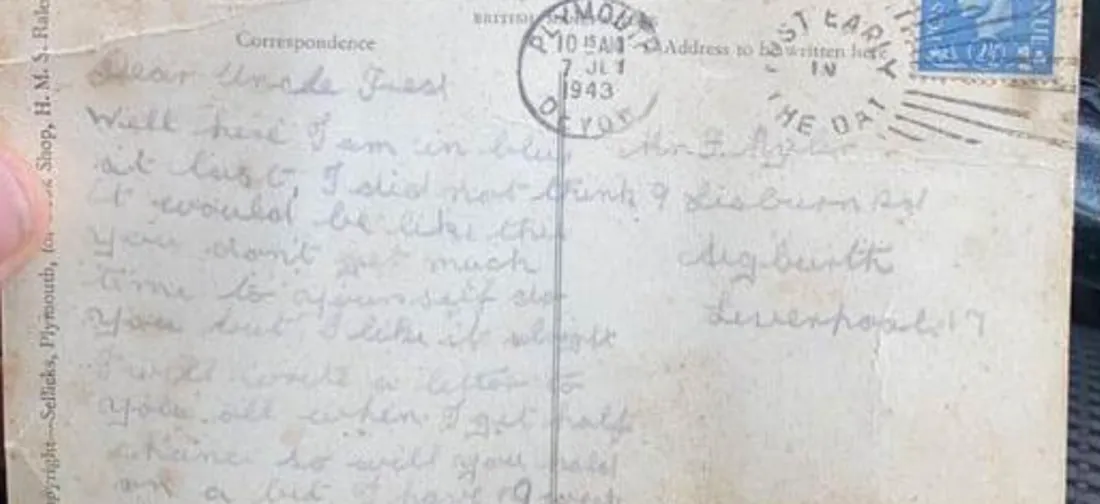 BRITISH
Correspondence
Address to be written here
PLYMOUTH
DEVON
10 15 AM
7 JLY
1943
POST EARLY
IN
THE DAY
2½D
Copyright—Sellicks, Plymouth, for Shop, H. M. S. Rale
Dear Uncle Fred
Well here I am in blue
at last, I did not think
it would be like this
you don't get much
time to yourself do
you but I like it alright
I will write a letter to
you all when I get half
chance so will you hold
on a bit I have 9 week
Mr F.
9 Lisburn Rd
Aigburth
Liverpool. 17